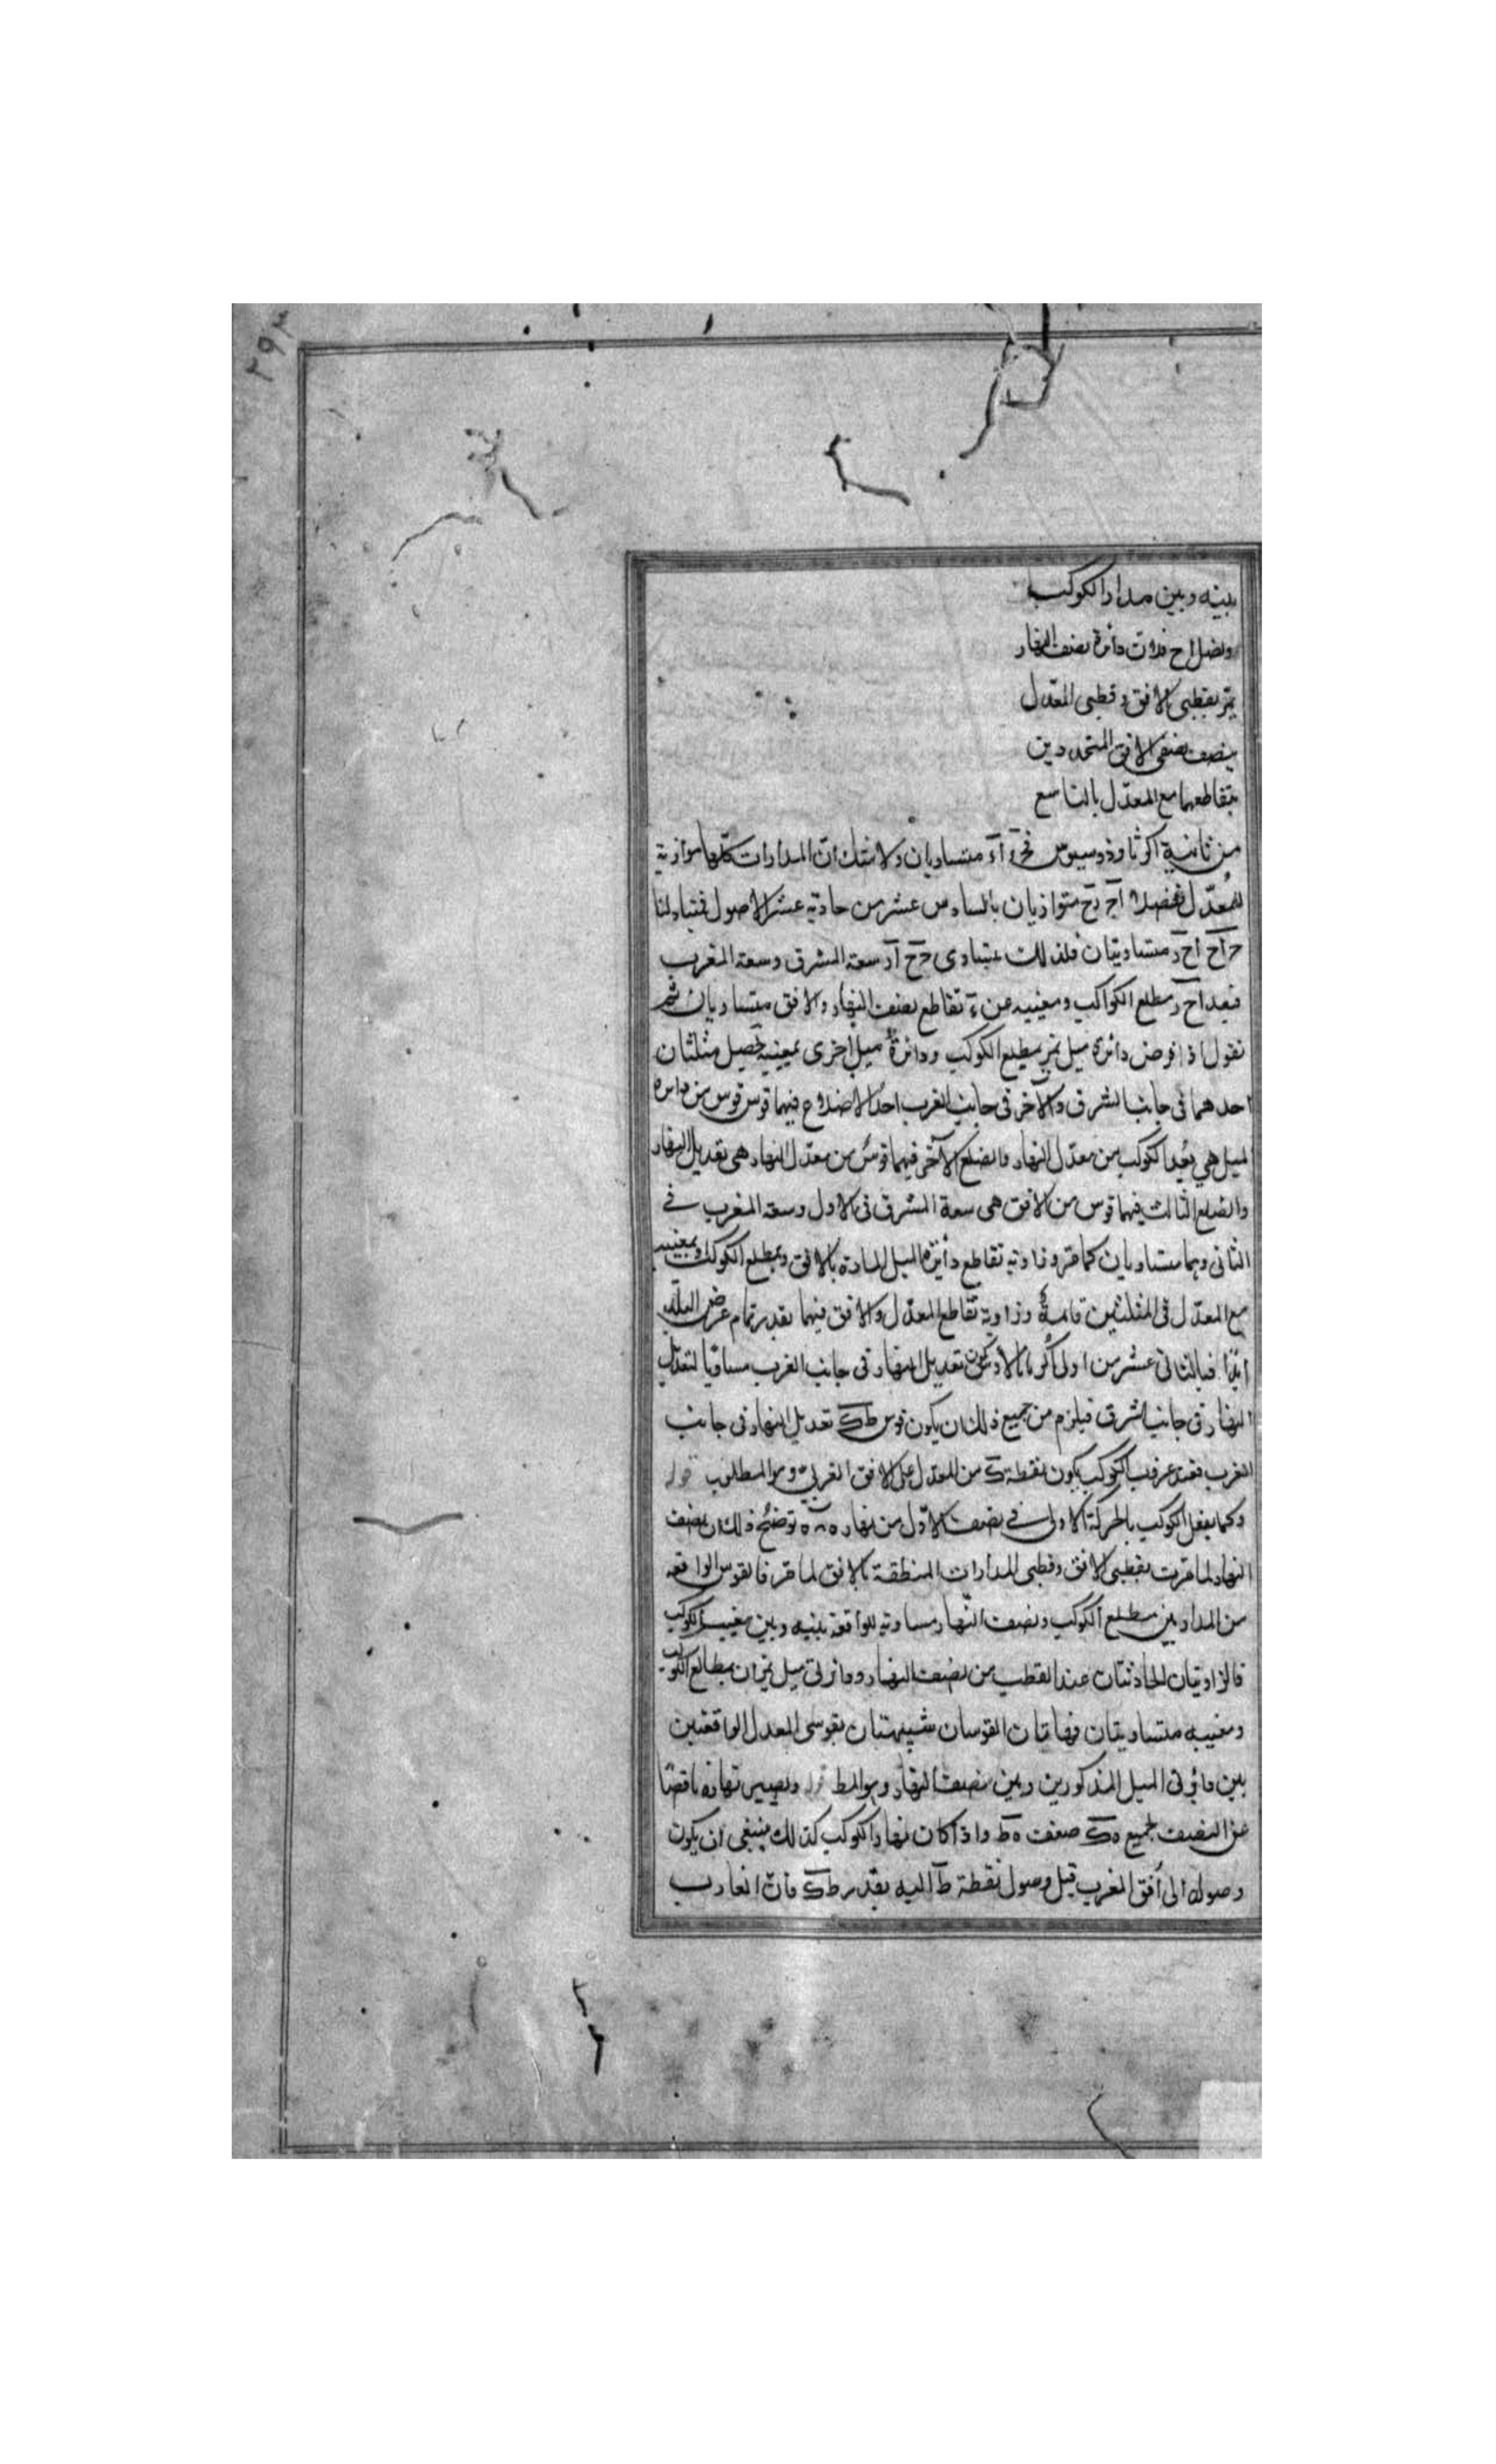 ٢٩٣
بينه وبين مدار الكوكب
ونصل اح فلان دائرة نصف النهار
تمرّ بقطبي الافق وقطبي المعدّل
ينصف نصفي الافق المتحددين
بتقاطعهما مع المعدّل بالتاسع
من ثانية اكر ثاوذوسيوس متساويان ولا شك ان المدارات كلّها موازية
للمعدّل ففصلا متوازيان بالسادس عشر من حادية عشر الاصول فمتبادلتا
متساويتان فلذلك يتساوى سعة المشرق وسعة المغرب
فبعدا مطلع الكواكب ومغيبه عن تقاطع نصف النهار والافق متساويان ثم
نقول اذا فرض دائرة ميل تمر بمطلع الكوكب ودائرة ميل اخرى بمغيبه تحصل مثلثان
احدهما في جانب الشرق والآخر في جانب الغرب احد الاضلاع فيهما قوس قوس من دائرة
الميل هي بُعد الكوكب من معدّل النهار والضلع الآخر فيهما قوس من معدّل النهار هي تعديل النهار
والضلع الثالث فيهما قوس من الافق هى سعة المشرق فى الاول وسعة المغرب في
الثانى وهما متساويان كما مر وزاوية تقاطع دائرة الميل المارة بالافق وبمطلع الكوكب وبمغيبه
مع المعدّل فى المثلثين قائمة وزاوية تقاطع المعدّل والافق فيهما بقدر تمام عرض البلد
ابدًا فبالثانى عشر من اولى اكر مانالاوس يكون تعديل النهار فى جانب الغرب مساويًا لتعديل
النهار فى جانب الشرق فيلزم من جميع ذلك ان يكون قوس طك تعديل النهار فى جانب
الغرب فعند غروب الكوكب يكون نقطة ك من المعدل على الافق الغربىّ وهو المطلوب قوله
وكما يفعل الكوكب بالحركة الاولى في نصف الاوّل من نهاره توضيح ذلك ان نصف
النهار لما مرت بقطبى الافق وقطبى المدارات المنطقة بالافق لما مر فالقوس الواقعة
من المدار بين مطلع الكوكب ونصف النّهار مساوية للواقعة بينه وبين مغيب الكوكب
فالزاويتان الحادثتان عند القطب من نصف النهار ودائرتى ميل تمران بمطالع الكوكب
ومغيبه متساويتان فهاتان القوسان شبيهتان بقوسى المعدل الواقعتين
بين دائرتى الميل المذكورين وبين نصف النهار وهو المط قوله ويصير نهاره ناقصًا
عن النصف بجميع ه‍ك ضعف ه‍ط واذا كان نهار الكوكب كذلك ينبغى ان يكون
وصوله الى أفق المغرب قبل وصول نقطة ط اليه بقدر طك فان الغارب